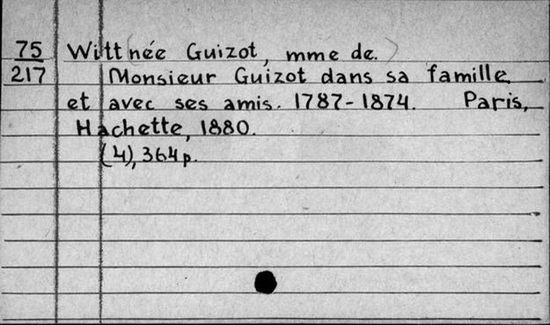 75 Witt (née Guizot, mme de.)
217 Monsieur Guizot dans sa famille
et avec ses amis. 1787-1874. Paris,
Hachette, 1880.
(4), 364 p.